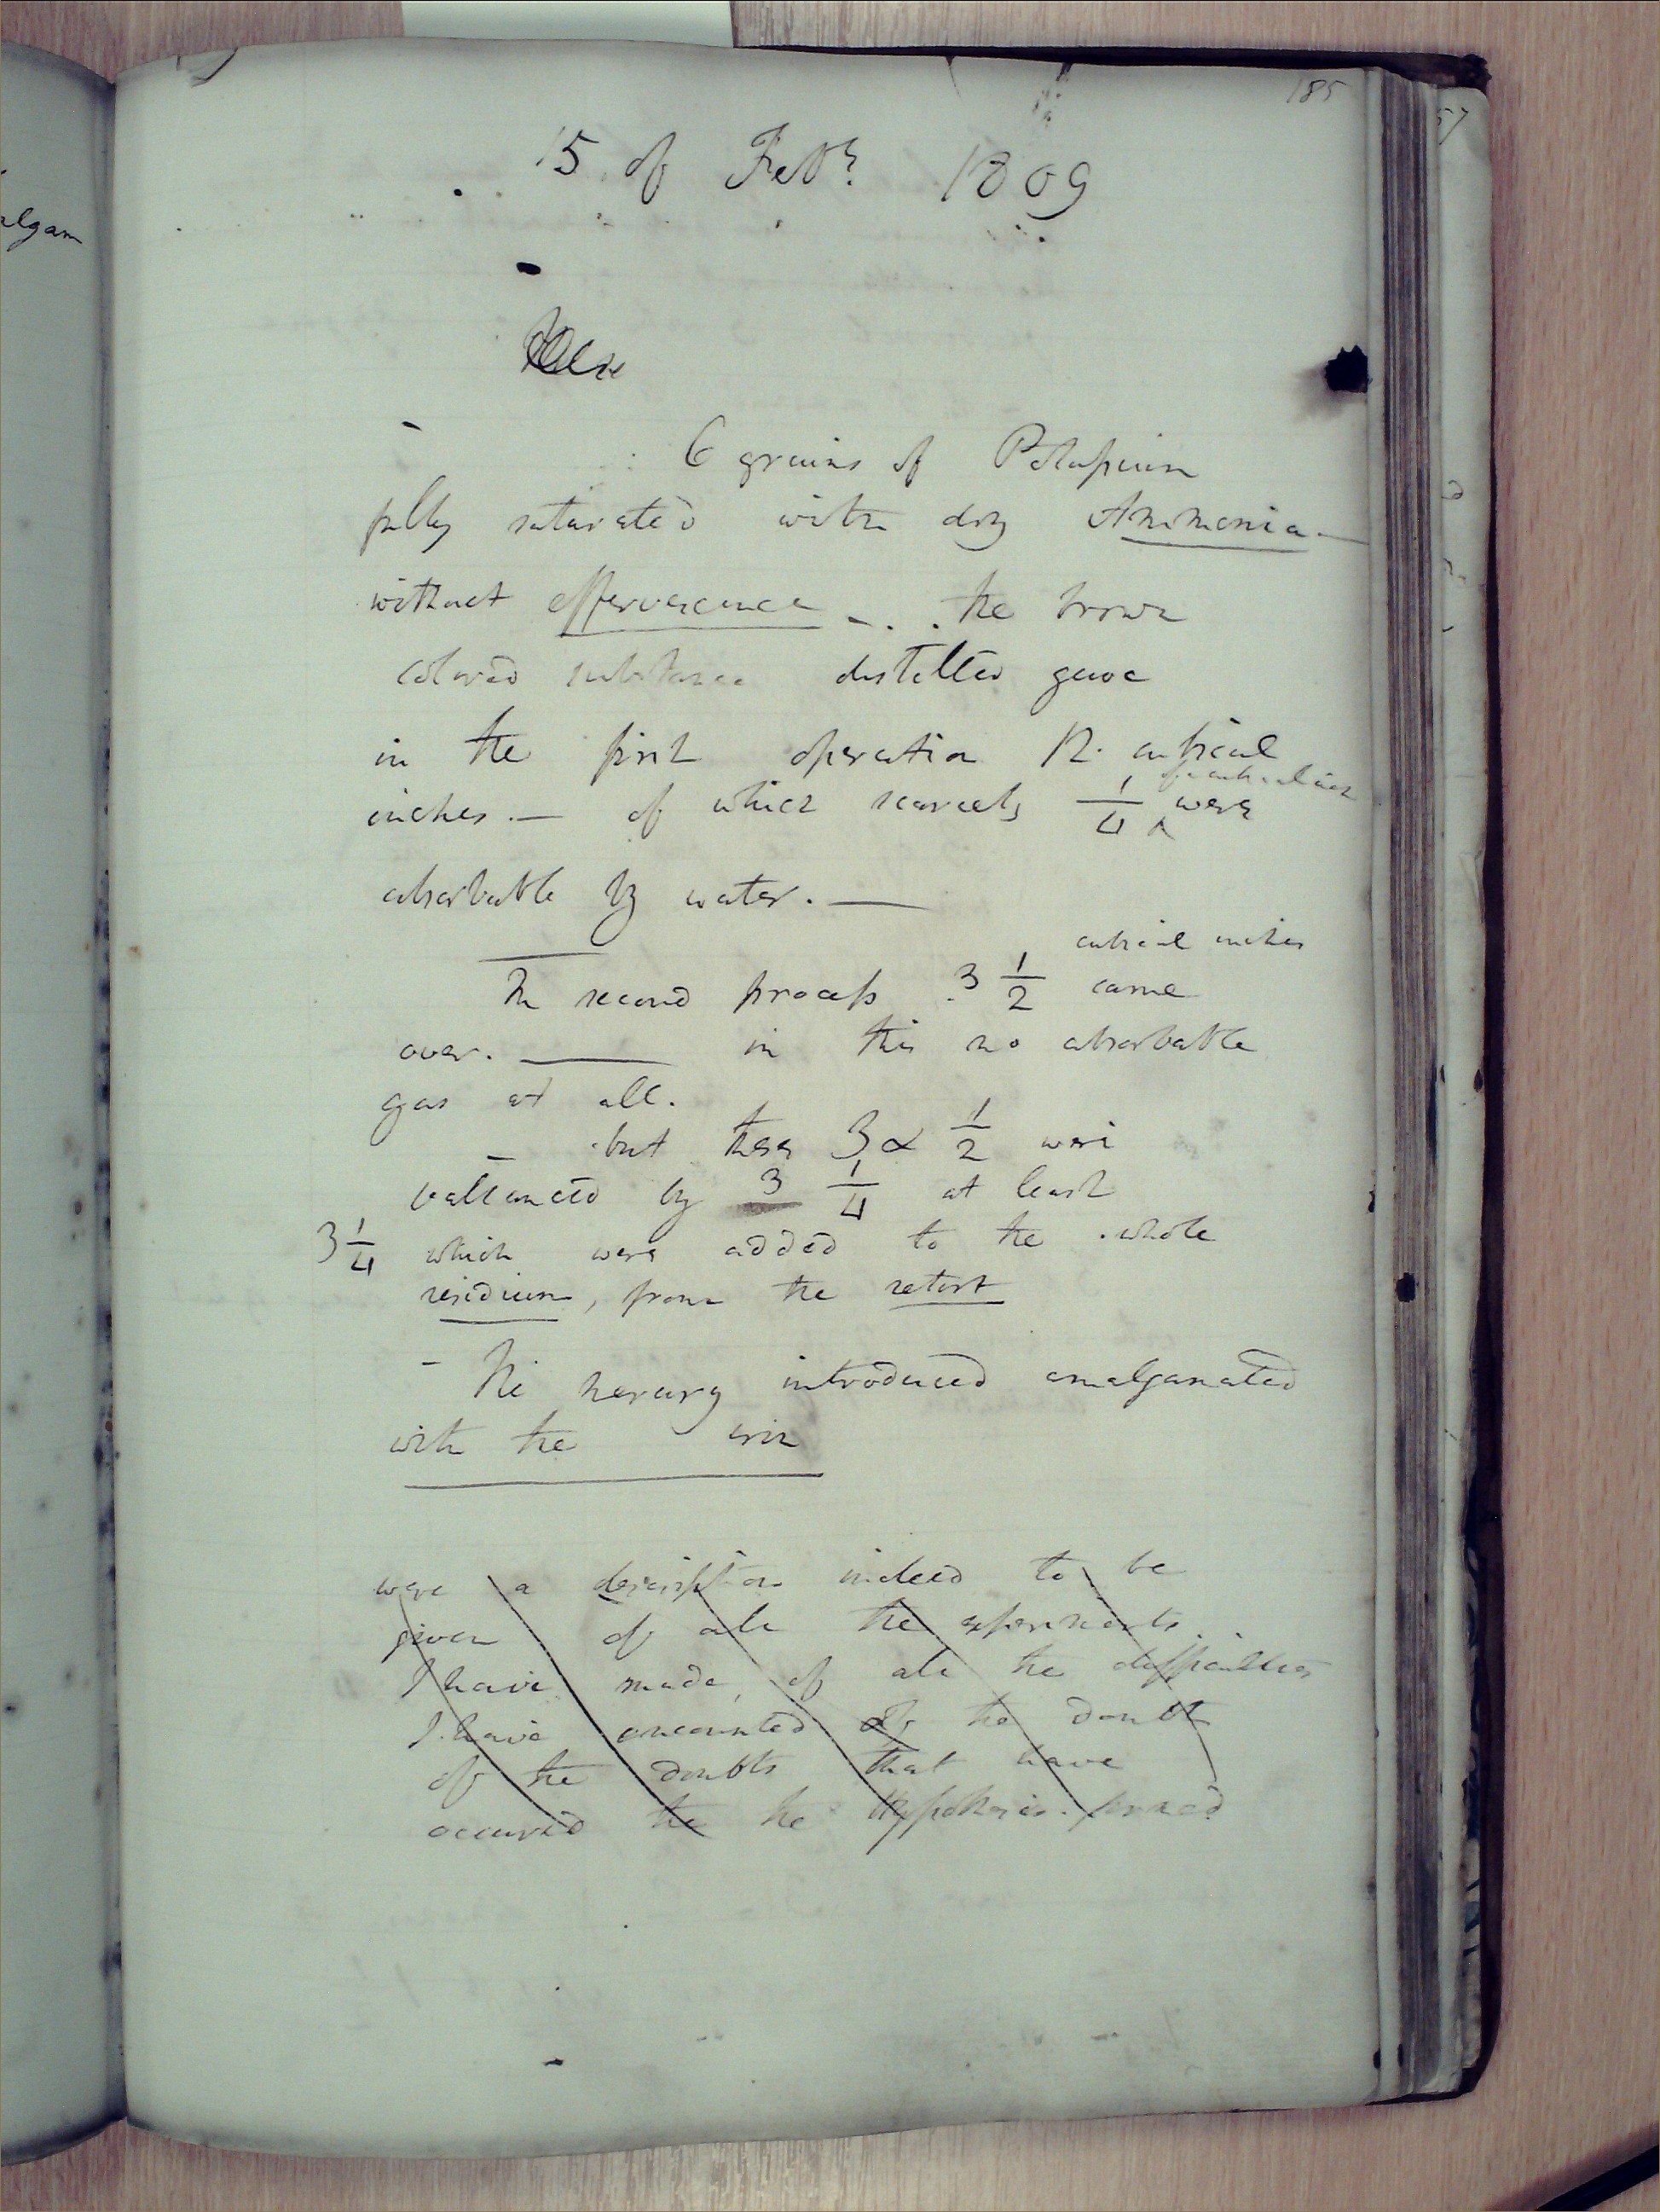 185
15 of Feby. 1809
6 grains of Potassium
fully saturated with dry Ammonia —
without effervescence — . . the brown
colored substance distilled gave
in the first operation 12. cubical
of a cubical inch
inches. — of which scarcely 1/4 ^ were
absorbable by water. —
cubical inches
In second process 3 1/2 came
over. — in this no absorbable
gas at all.
– but these 3 & 1/2 were
ballanced by 3 1/4 at least
3 1/4 which were added to the whole
residuum, from the retort
– The mercury introduced amalgamated
with the iron
were a description indeed to be
given of all the experiments
I have made, of all the difficulties
I have encounted of the doubt
of the doubts that have
occurred the the hypothesis formed
algam
57